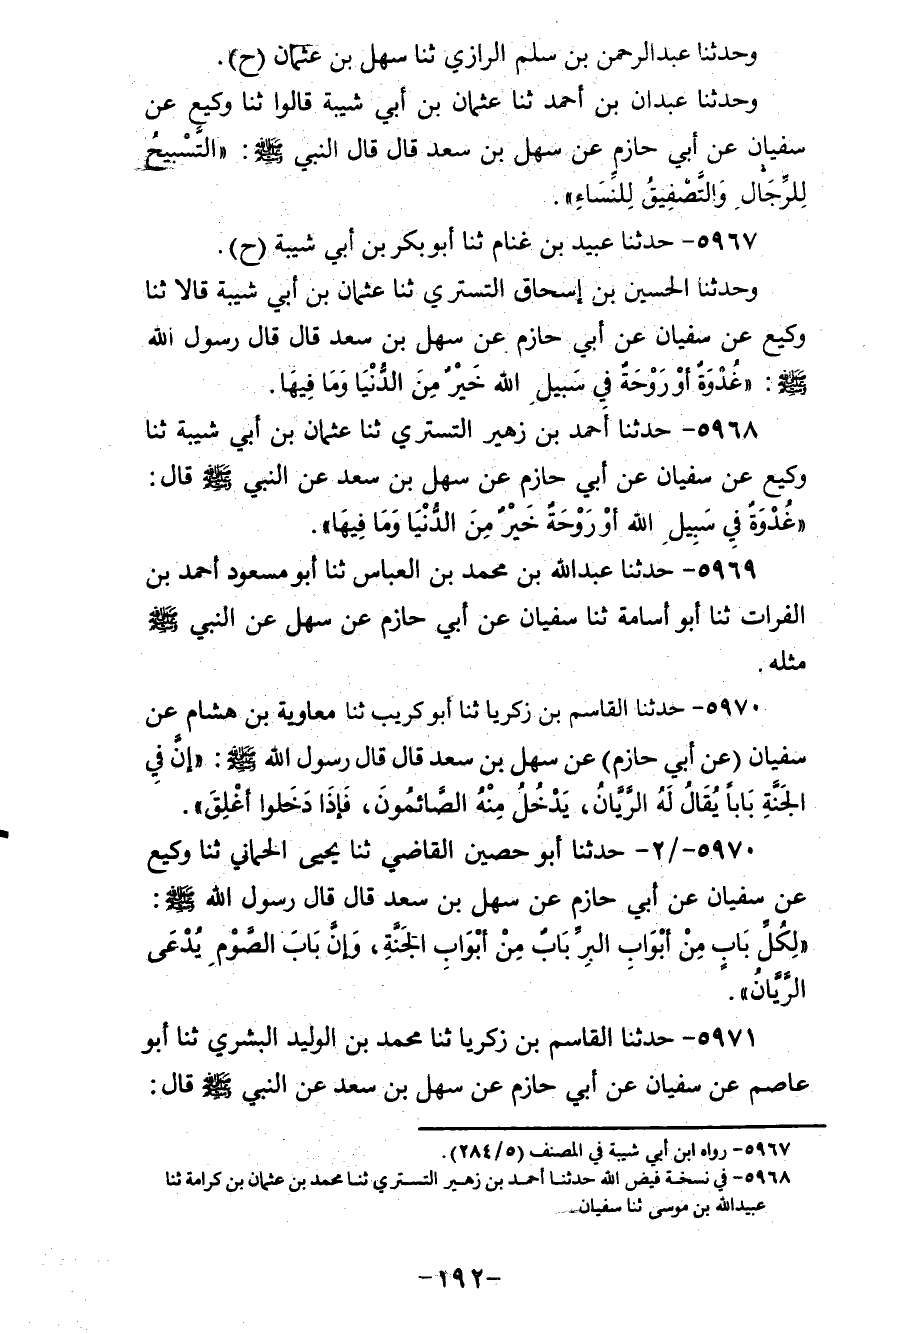 وحدثنا عبدالرحمن بن سلم الرازي ثنا سهل بن عثمان (ح).
وحدثنا عبدان بن أحمد ثنا عثمان بن أبي شيبة قالوا ثنا وكيع عن
سفيان عن أبي حازم عن سهل بن سعد قال قال النبي ﷺ: «التَّسْبِيحُ
لِلرِّجَالِ وَالتَّصْفِيقُ لِلنِّسَاءِ».
٥٩٦٧- حدثنا عبيد بن غنام ثنا أبو بكر بن أبي شيبة (ح).
وحدثنا الحسين بن إسحاق التستري ثنا عثمان بن أبي شيبة قالا ثنا
وكيع عن سفيان عن أبي حازم عن سهل بن سعد قال قال رسول الله
ﷺ: «غُدْوَةٌ أوْ رَوْحَةٌ فِي سَبِيلِ الله خَيْرٌ مِنَ الدُّنْيَا وَمَا فِيهَا.
٥٩٦٨- حدثنا أحمد بن زهير التستري ثنا عثمان بن أبي شيبة ثنا
وكيع عن سفيان عن أبي حازم عن سهل بن سعد عن النبي ﷺ قال:
«غُدْوَةٌ فِي سَبِيلِ الله أوْ رَوْحَةٌ خَيْرٌ مِنَ الدُّنْيَا وَمَا فِيهَا».
٥٩٦٩- حدثنا عبدالله بن محمد بن العباس ثنا أبو مسعود أحمد بن
الفرات ثنا أبو أسامة ثنا سفيان عن أبي حازم عن سهل عن النبي ﷺ
مثله.
٥٩٧٠- حدثنا القاسم بن زكريا ثنا أبو كريب ثنا معاوية بن هشام عن
سفيان (عن أبي حازم) عن سهل بن سعد قال قال رسول الله ﷺ: «إنَّ فِي
الجَنَّةِ بَاباً يُقَالُ لَهُ الرَّيَّانُ، يَدْخُلُ مِنْهُ الصَّائمُونَ، فَإذَا دَخَلوا أغْلِقَ».
٥٩٧٠-/٢- حدثنا أبو حصين القاضي ثنا يحيى الحماني ثنا وكيع
عن سفيان عن أبي حازم عن سهل بن سعد قال قال رسول الله ﷺ:
«لِكُلِّ بَابٍ مِنْ أبْوَابِ البِرِّ بَابٌ مِنْ أبْوَابِ الجَنَّةِ، وَإنَّ بَابَ الصَّوْمِ يُدْعَى
الرَّيَّانُ».
٥٩٧١- حدثنا القاسم بن زكريا ثنا محمد بن الوليد البشري ثنا أبو
عاصم عن سفيان عن أبي حازم عن سهل بن سعد عن النبي ﷺ قال:
٥٩٦٧- رواه ابن أبي شيبة في المصنف (٢٨٤/٥).
٥٩٦٨- في نسخة فيض الله حدثنا أحمد بن زهير التستري ثنا محمد بن عثمان بن كرامة ثنا
عبيدالله بن موسى ثنا سفيان
-١٩٢-